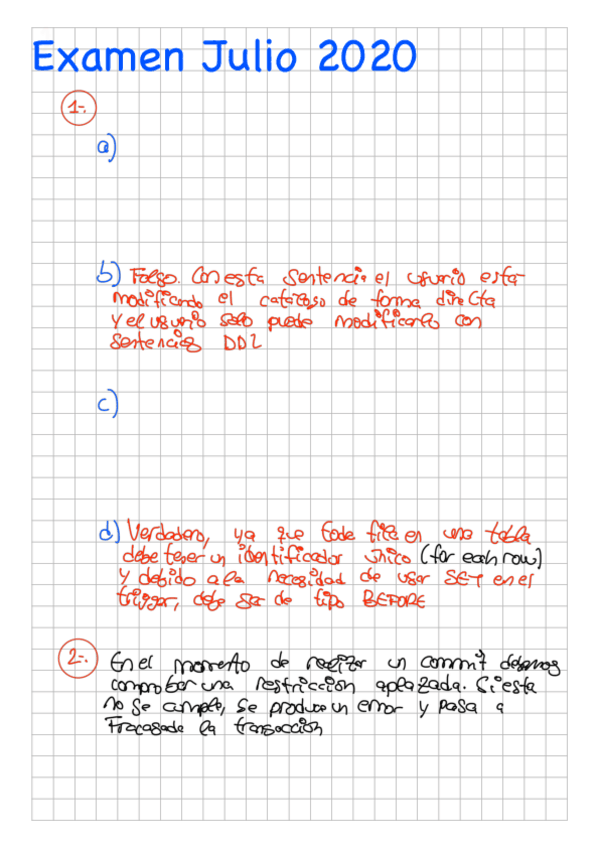 Examen Julio 2020
1-.
a)
b) Falso. Con esta sentencia el usuario esta
modificando el catálogo de forma directa
y el usuario solo puede modificarlo con
sentencias DDL
c)
d) Verdadero, ya que toda fila en una tabla
debe tener un identificador unico (for each row)
y debido a la necesidad de usar SET en el
trigger, debe ser de tipo BEFORE
2-. En el momento de realizar un commit debemos
comprobar una restricción aplazada. Si esta
no se cumple, se produce un error y pasa a
Fracasada la transacción